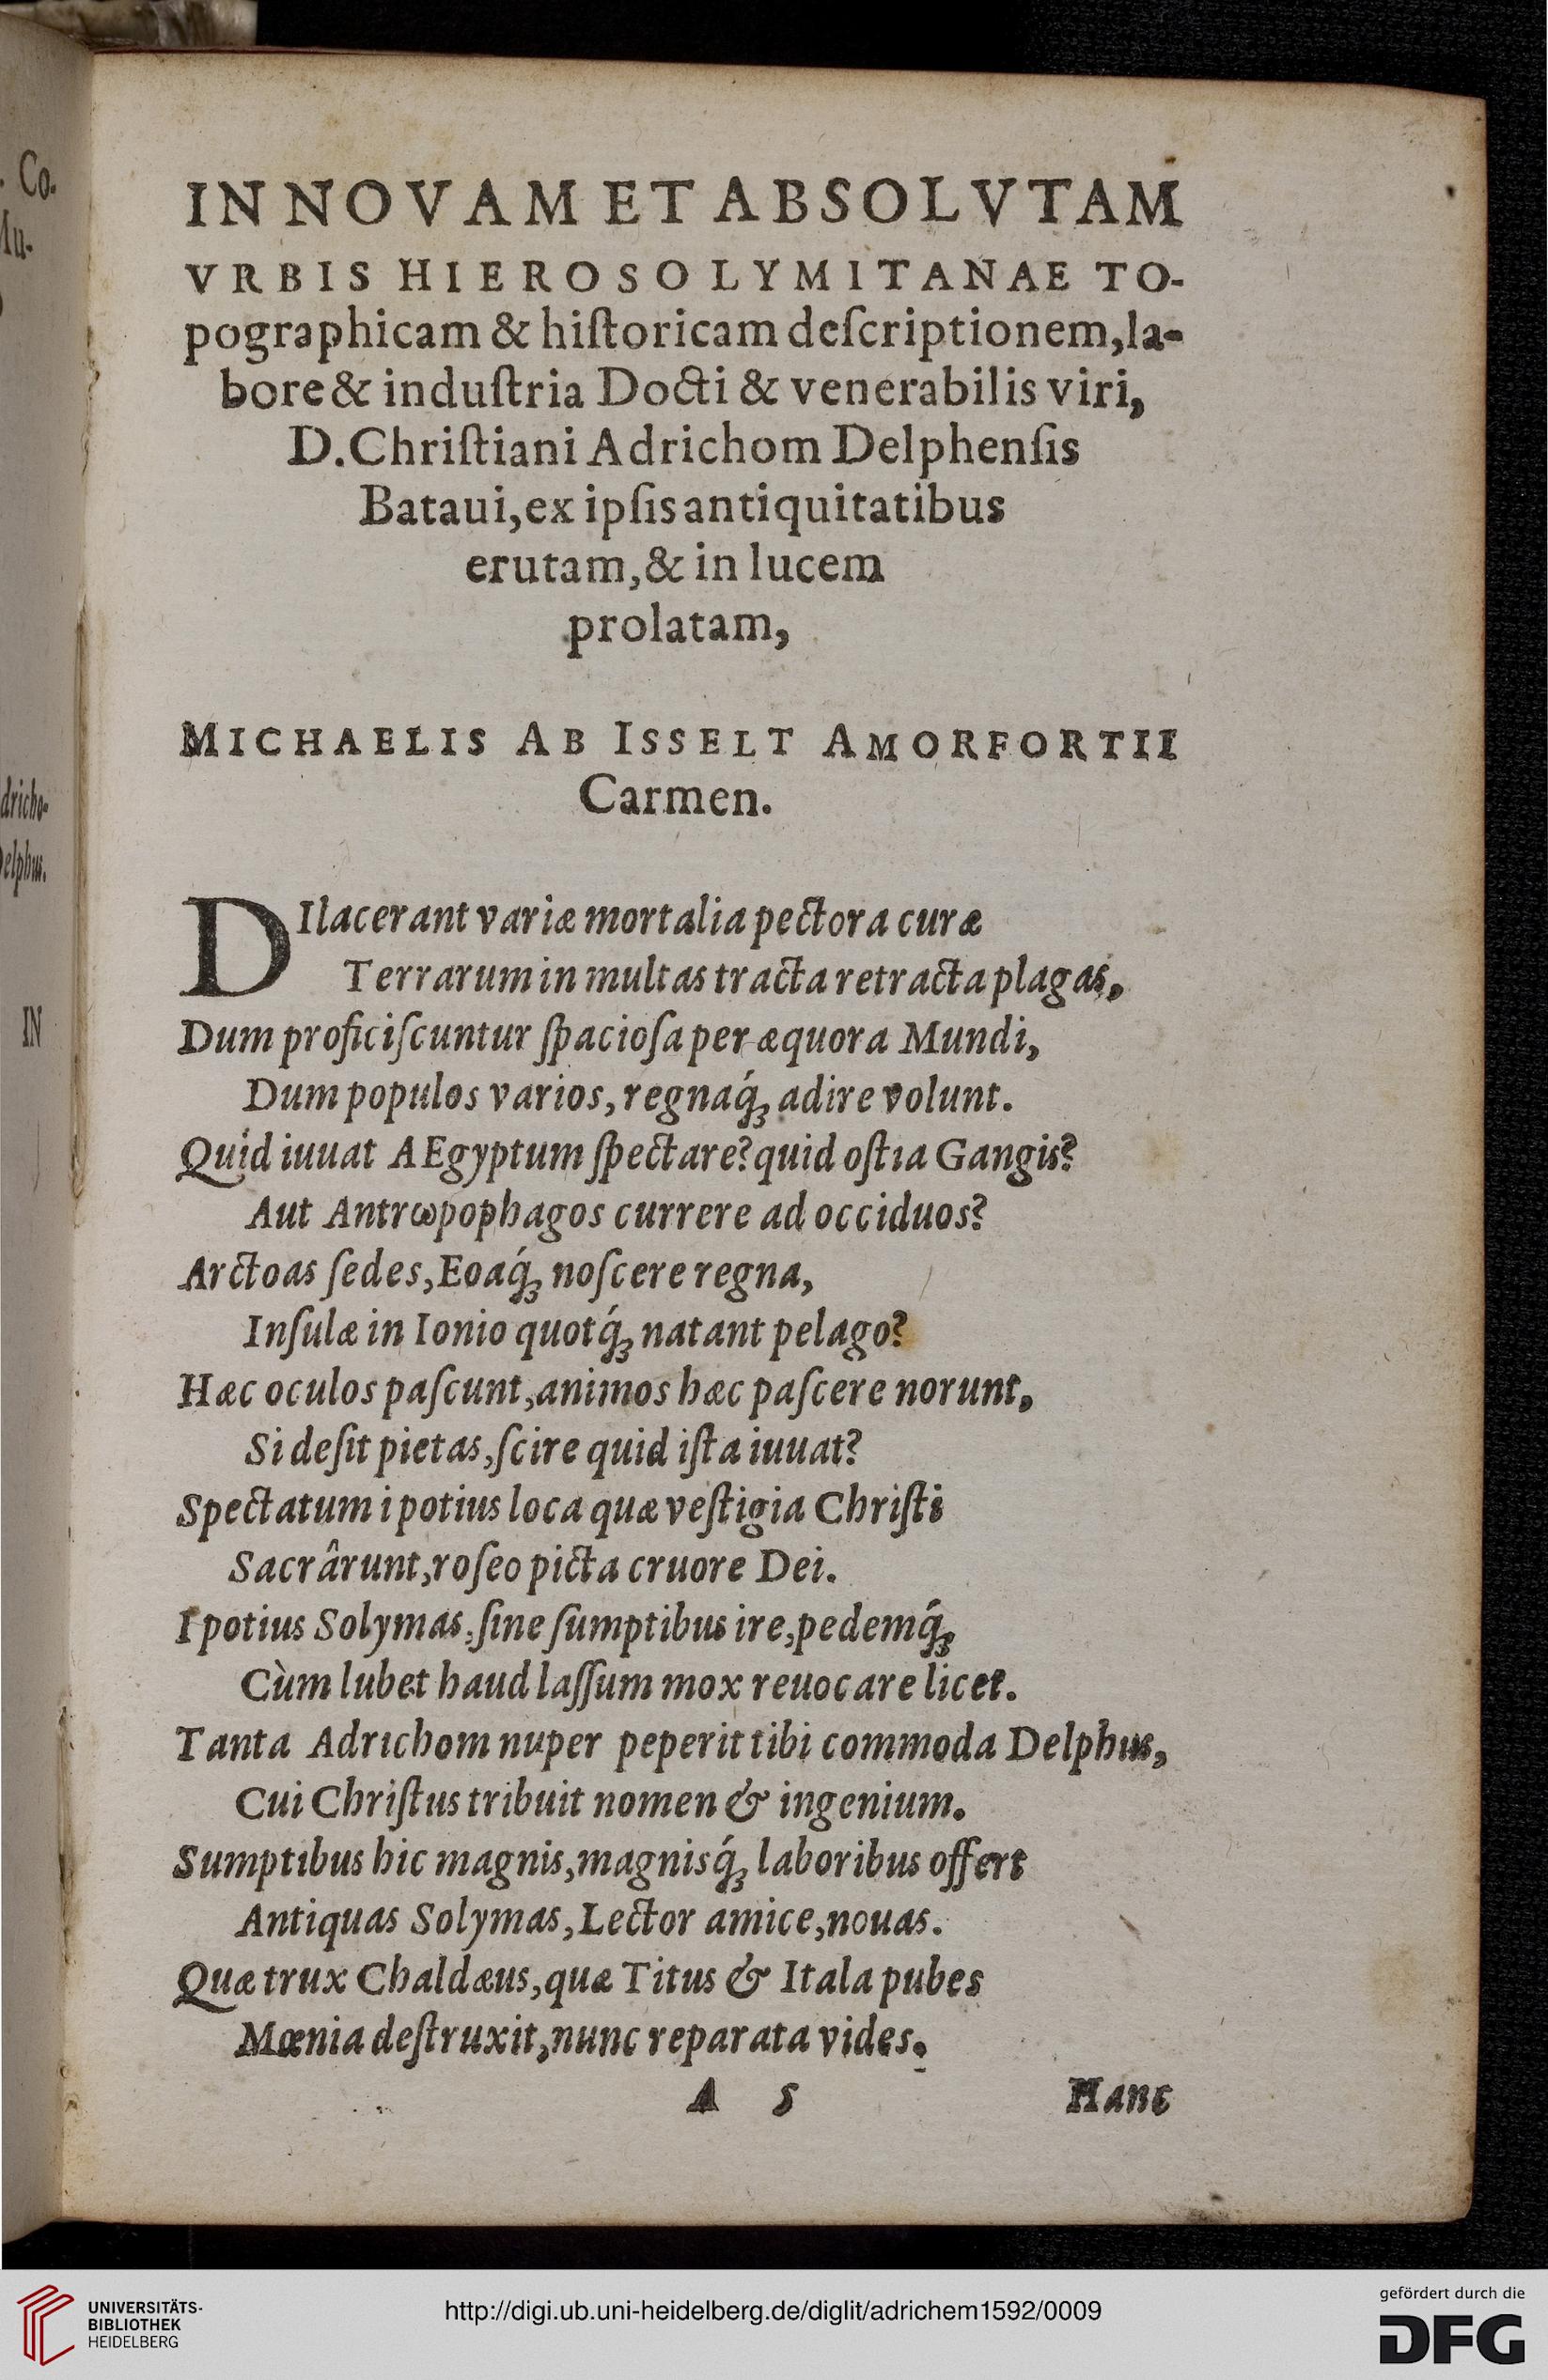 . Co.
Mu-
dricho-
Delphus.
IN
IN NOVAM ET ABSOLVTAM
VRBIS HIEROSOLYMITANAE TO-
pographicam & hiſtoricam deſcriptionem, la-
bore & induſtria Docti & venerabilis viri,
D. Chriſtiani Adrichom Delphenſis
Bataui, ex ipſis antiquitatibus
erutam, & in lucem
prolatam,
MICHAELIS AB ISSELT AMORFORTII
Carmen.
DIlacerant variæ mortalia pectora curæ
Terrarum in multas tracta retracta plagas,
Dum proficiſcuntur ſpacioſa per æquora Mundi,
Dum populos varios, regnaq́ꝫ adire volunt.
Quid iuuat AEgyptum ſpectare? quid oſtia Gangis?
Aut Antrωpophagos currere ad occiduos?
Arctoas ſedes, Eoaq́ꝫ noſcere regna,
Inſulæ in Ionio quotq́ꝫ natant pelago?
Hæc oculos paſcunt, animos hæc paſcere norunt,
Si deſit pietas, ſcire quid iſta iuuat?
Spectatum i potius loca quæ veſtigia Chriſti
Sacrârunt, roſeo picta cruore Dei.
I potius Solymas, ſine ſumptibus ire, pedemq́ꝫ
Cùm lubet haud laſſum mox reuocare licet.
Tanta Adrichom nuper peperit tibi commoda Delphus,
Cui Chriſtus tribuit nomen & ingenium.
Sumptibus hic magnis, magnisq́ꝫ laboribus offert
Antiquas Solymas, Lector amice, nouas.
Quæ trux Chaldæus, quæ Titus & Itala pubes
Mœnia deſtruxit, nunc reparata vides.
A 5 Hanc
UNIVERSITÄTS-
BIBLIOTHEK
HEIDELBERG
http://digi.ub.uni-heidelberg.de/diglit/adrichem1592/0009
gefördert durch die
DFG